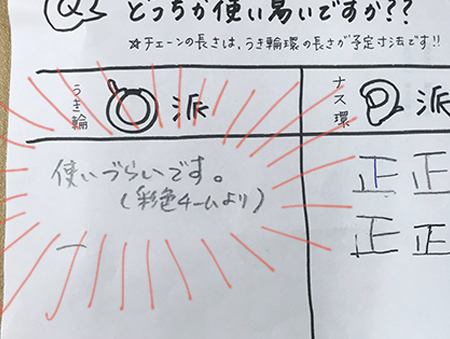 Q2
どっちが使い易いですか??
☆チェーンの長さは、うき輪環の長さが予定寸法です!!
うき輪 派
ナス環 派
使いづらいです。
(彩色チームより)
一
正 正
正 正